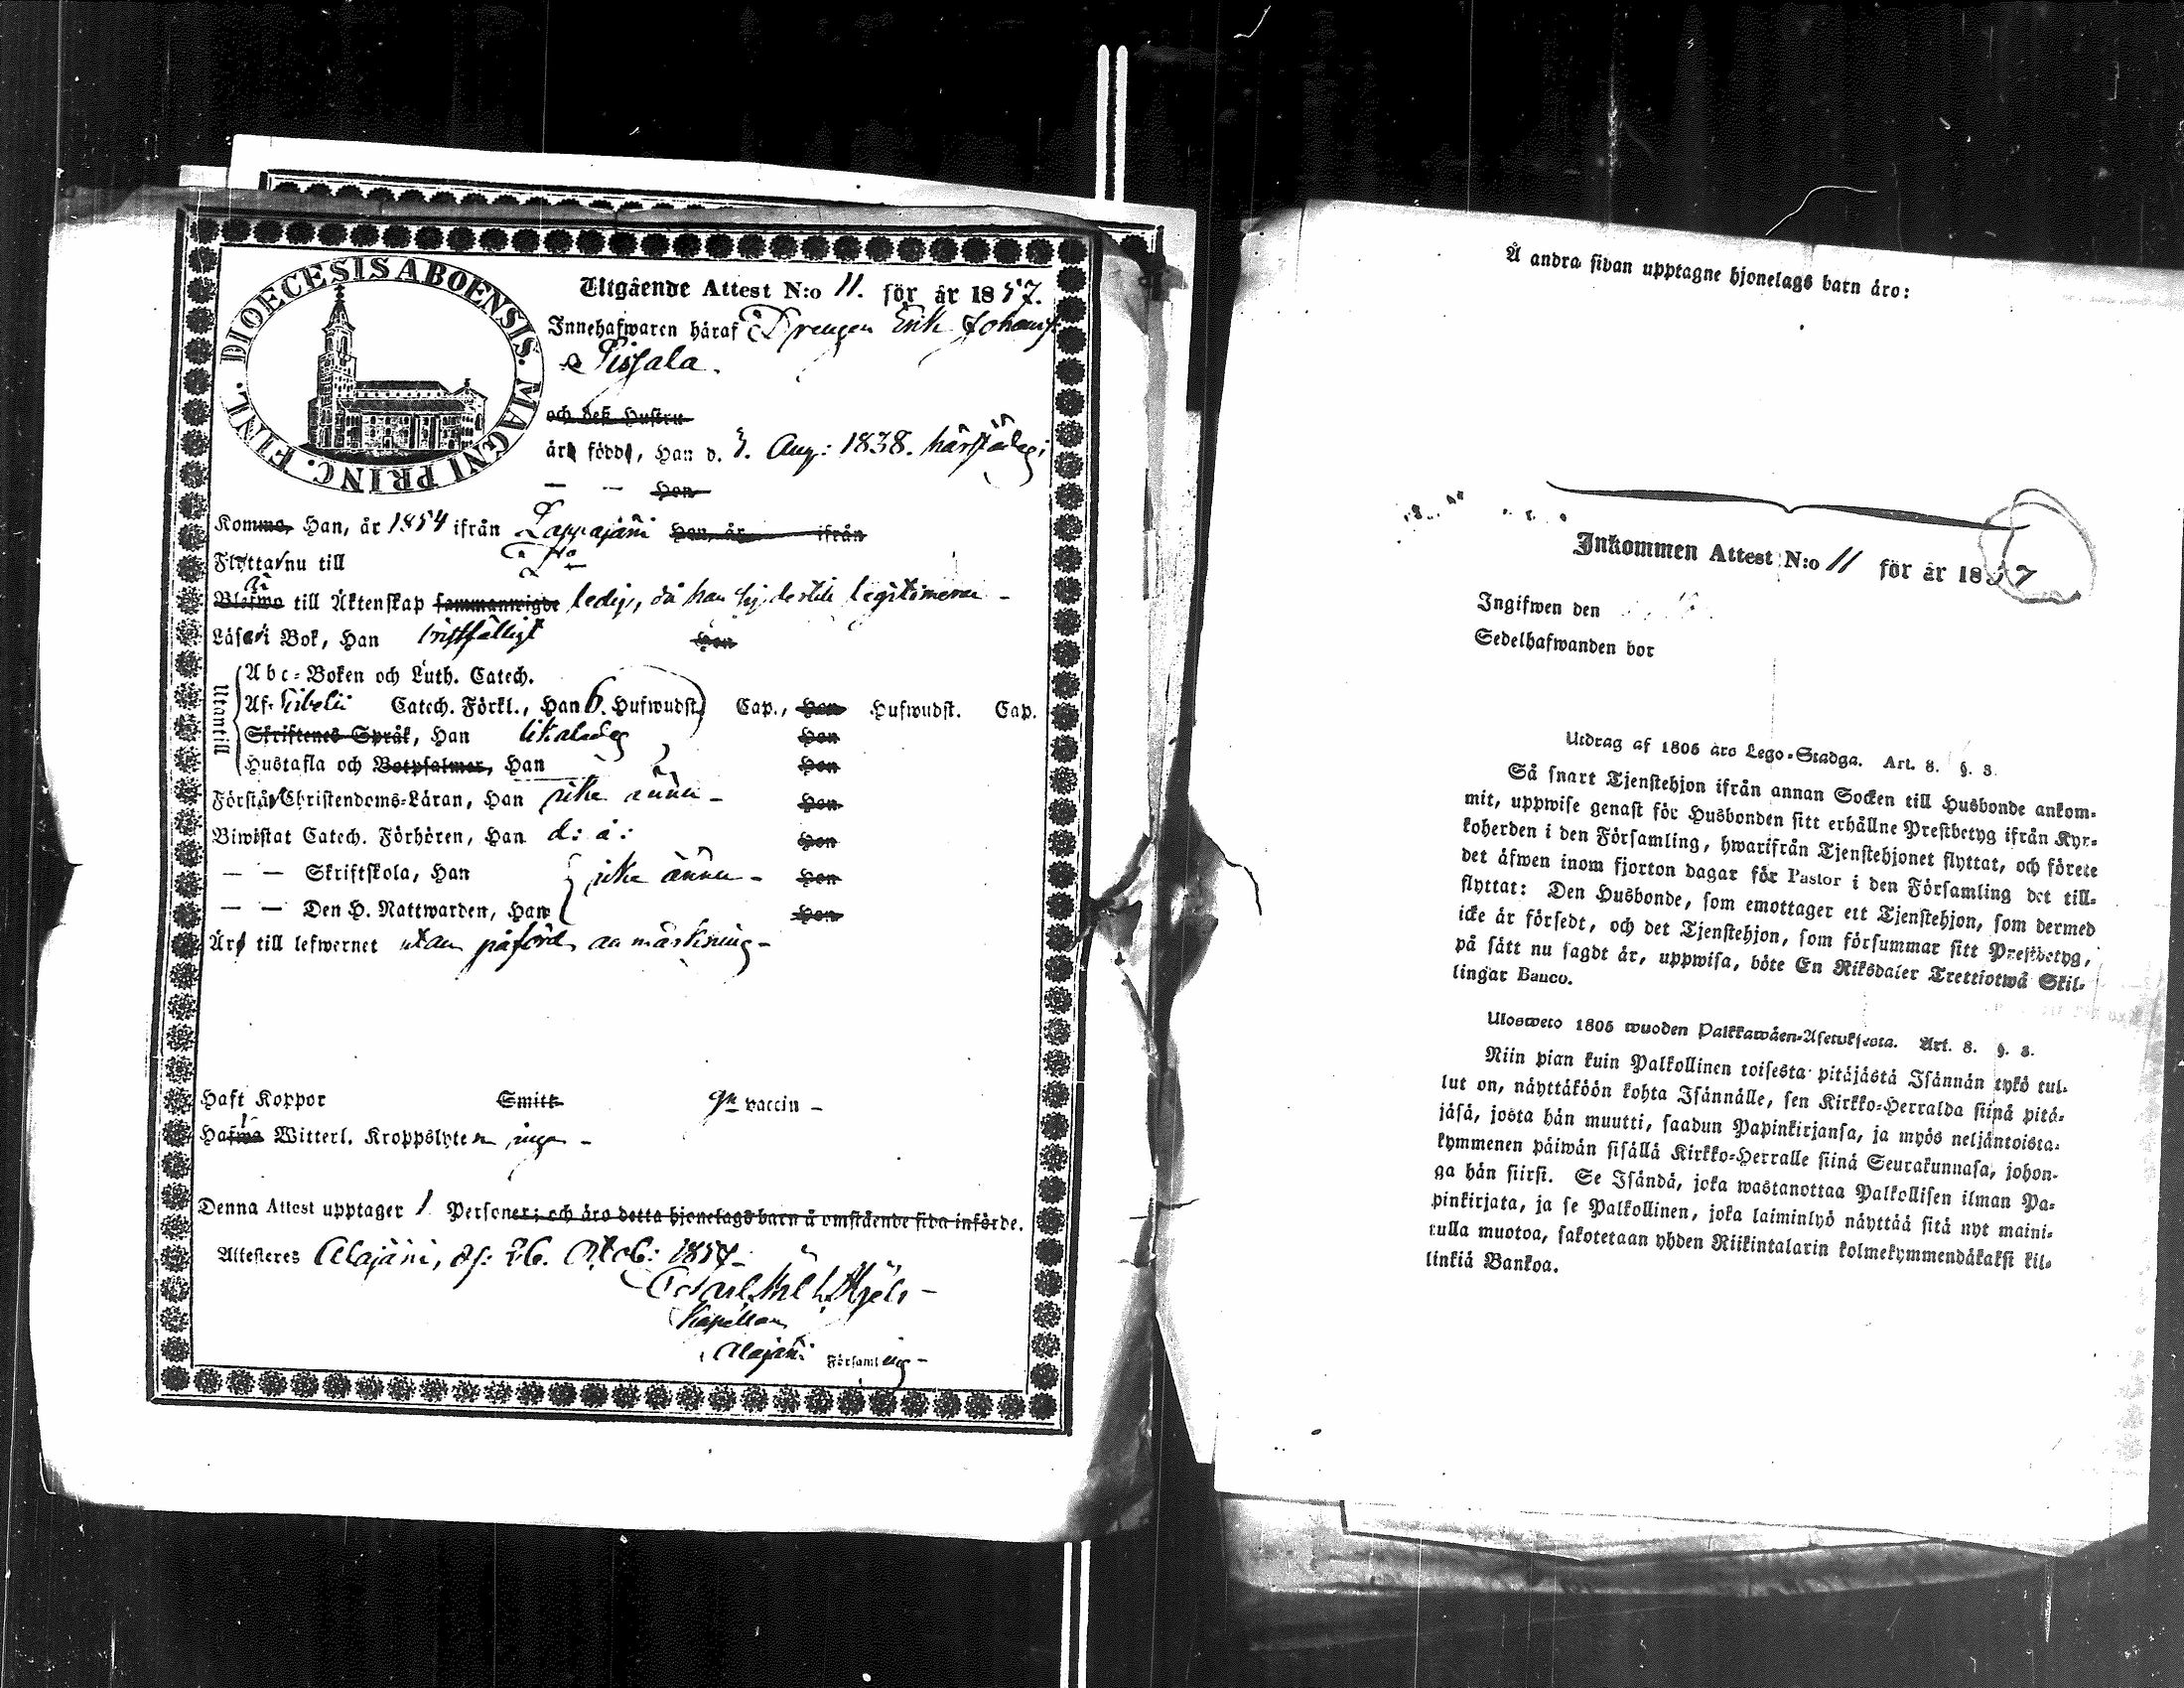 DIOECESIS ABOENSIS. MAGNI PRINC. FINL.
Utgående Attest N:o 11. för år 1857.
Innehafwaren häraf Drengen Erik Johansf:
Pissala.
och deß Hustru
är född, Han d. 3. Aug: 1838. härstädes;
— — Hon
Komma, Han, år 1854 ifrån Lappajärvi Hon, år ifrån
Flyttar nu till
Blefwo till Äktenskap sammanwigde ledig, då han sig dertill legitimerar –
Läsa i Bok, Han Hon
Utantill
Abc-Boken och Luth. Catech.
Af Catech. Förkl., Han 6. Hufwudst. Cap., Hon Hufwudst. Cap.
Skriftenes Språk, Han likaledes Hon
Hustafla och Botpsalmer, Han Hon
Förstår Christendoms-Läran, Han icke ännu – Hon
Biwistat Catech. Förhören, Han d: å: Hon
— — Skriftskola, Han icke ännu – Hon
— — Den H. Nattwarden, Han Hon
Är till lefwernet utan påförd anmärkning –
Haft Koppor Smitt gn vaccin –
Hafwa Witterl. Kroppslyten inga –
Denna Attest upptager 1 Personer; och äro detta hjonelags barn å omstående sida införde.
Attesteres Alajärvi, d: 26. Oktob: 1857.
Kapellan
Alajärvi Församling –
Å andra sidan upptagne hjonelags barn äro:
Inkommen Attest N:o 11 för år 1857
Ingifwen den
Sedelhafwanden bor
Utdrag af 1805 års Lego-Stadga. Art. 8. §. 3.
Så snart Tjenstehjon ifrån annan Socken till Husbonde ankom-
mit, uppwise genast för Husbonden sitt erhållne Prestbetyg ifrån Kyr-
koherden i den Församling, hwarifrån Tjenstehjonet flyttat, och förete
det äfwen inom fjorton dagar för Pastor i den Församling det till-
flyttat: Den Husbonde, som emottager ett Tjenstehjon, som dermed
icke är försedt, och det Tjenstehjon, som försummar sitt Prestbetyg,
på sätt nu sagdt är, uppwisa, böte En Riksdaler Trettiotwå Skil-
lingar Banco.
Ulosweto 1805 wuoden Palkkawäen-Asetuksesta. Art. 8. §. 3.
Niin pian kuin Palkollinen toisesta pitäjästä Isännän tykö tul-
lut on, näyttäköön kohta Isännälle, sen Kirkko-Herralda siinä pitä-
jäsä, josta hän muutti, saadun Papinkirjansa, ja myös neljäntoista-
kymmenen päiwän sisällä Kirkko-Herralle siinä Seurakunnasa, johon-
ga hän siirsi. Se Isändä, joka wastanottaa Palkollisen ilman Pa-
pinkirjata, ja se Palkollinen, joka laiminlyö näyttää sitä nyt maini-
tulla muotoa, sakotetaan yhden Riikintalarin kolmekymmendäkaksi kil-
linkiä Bankoa.